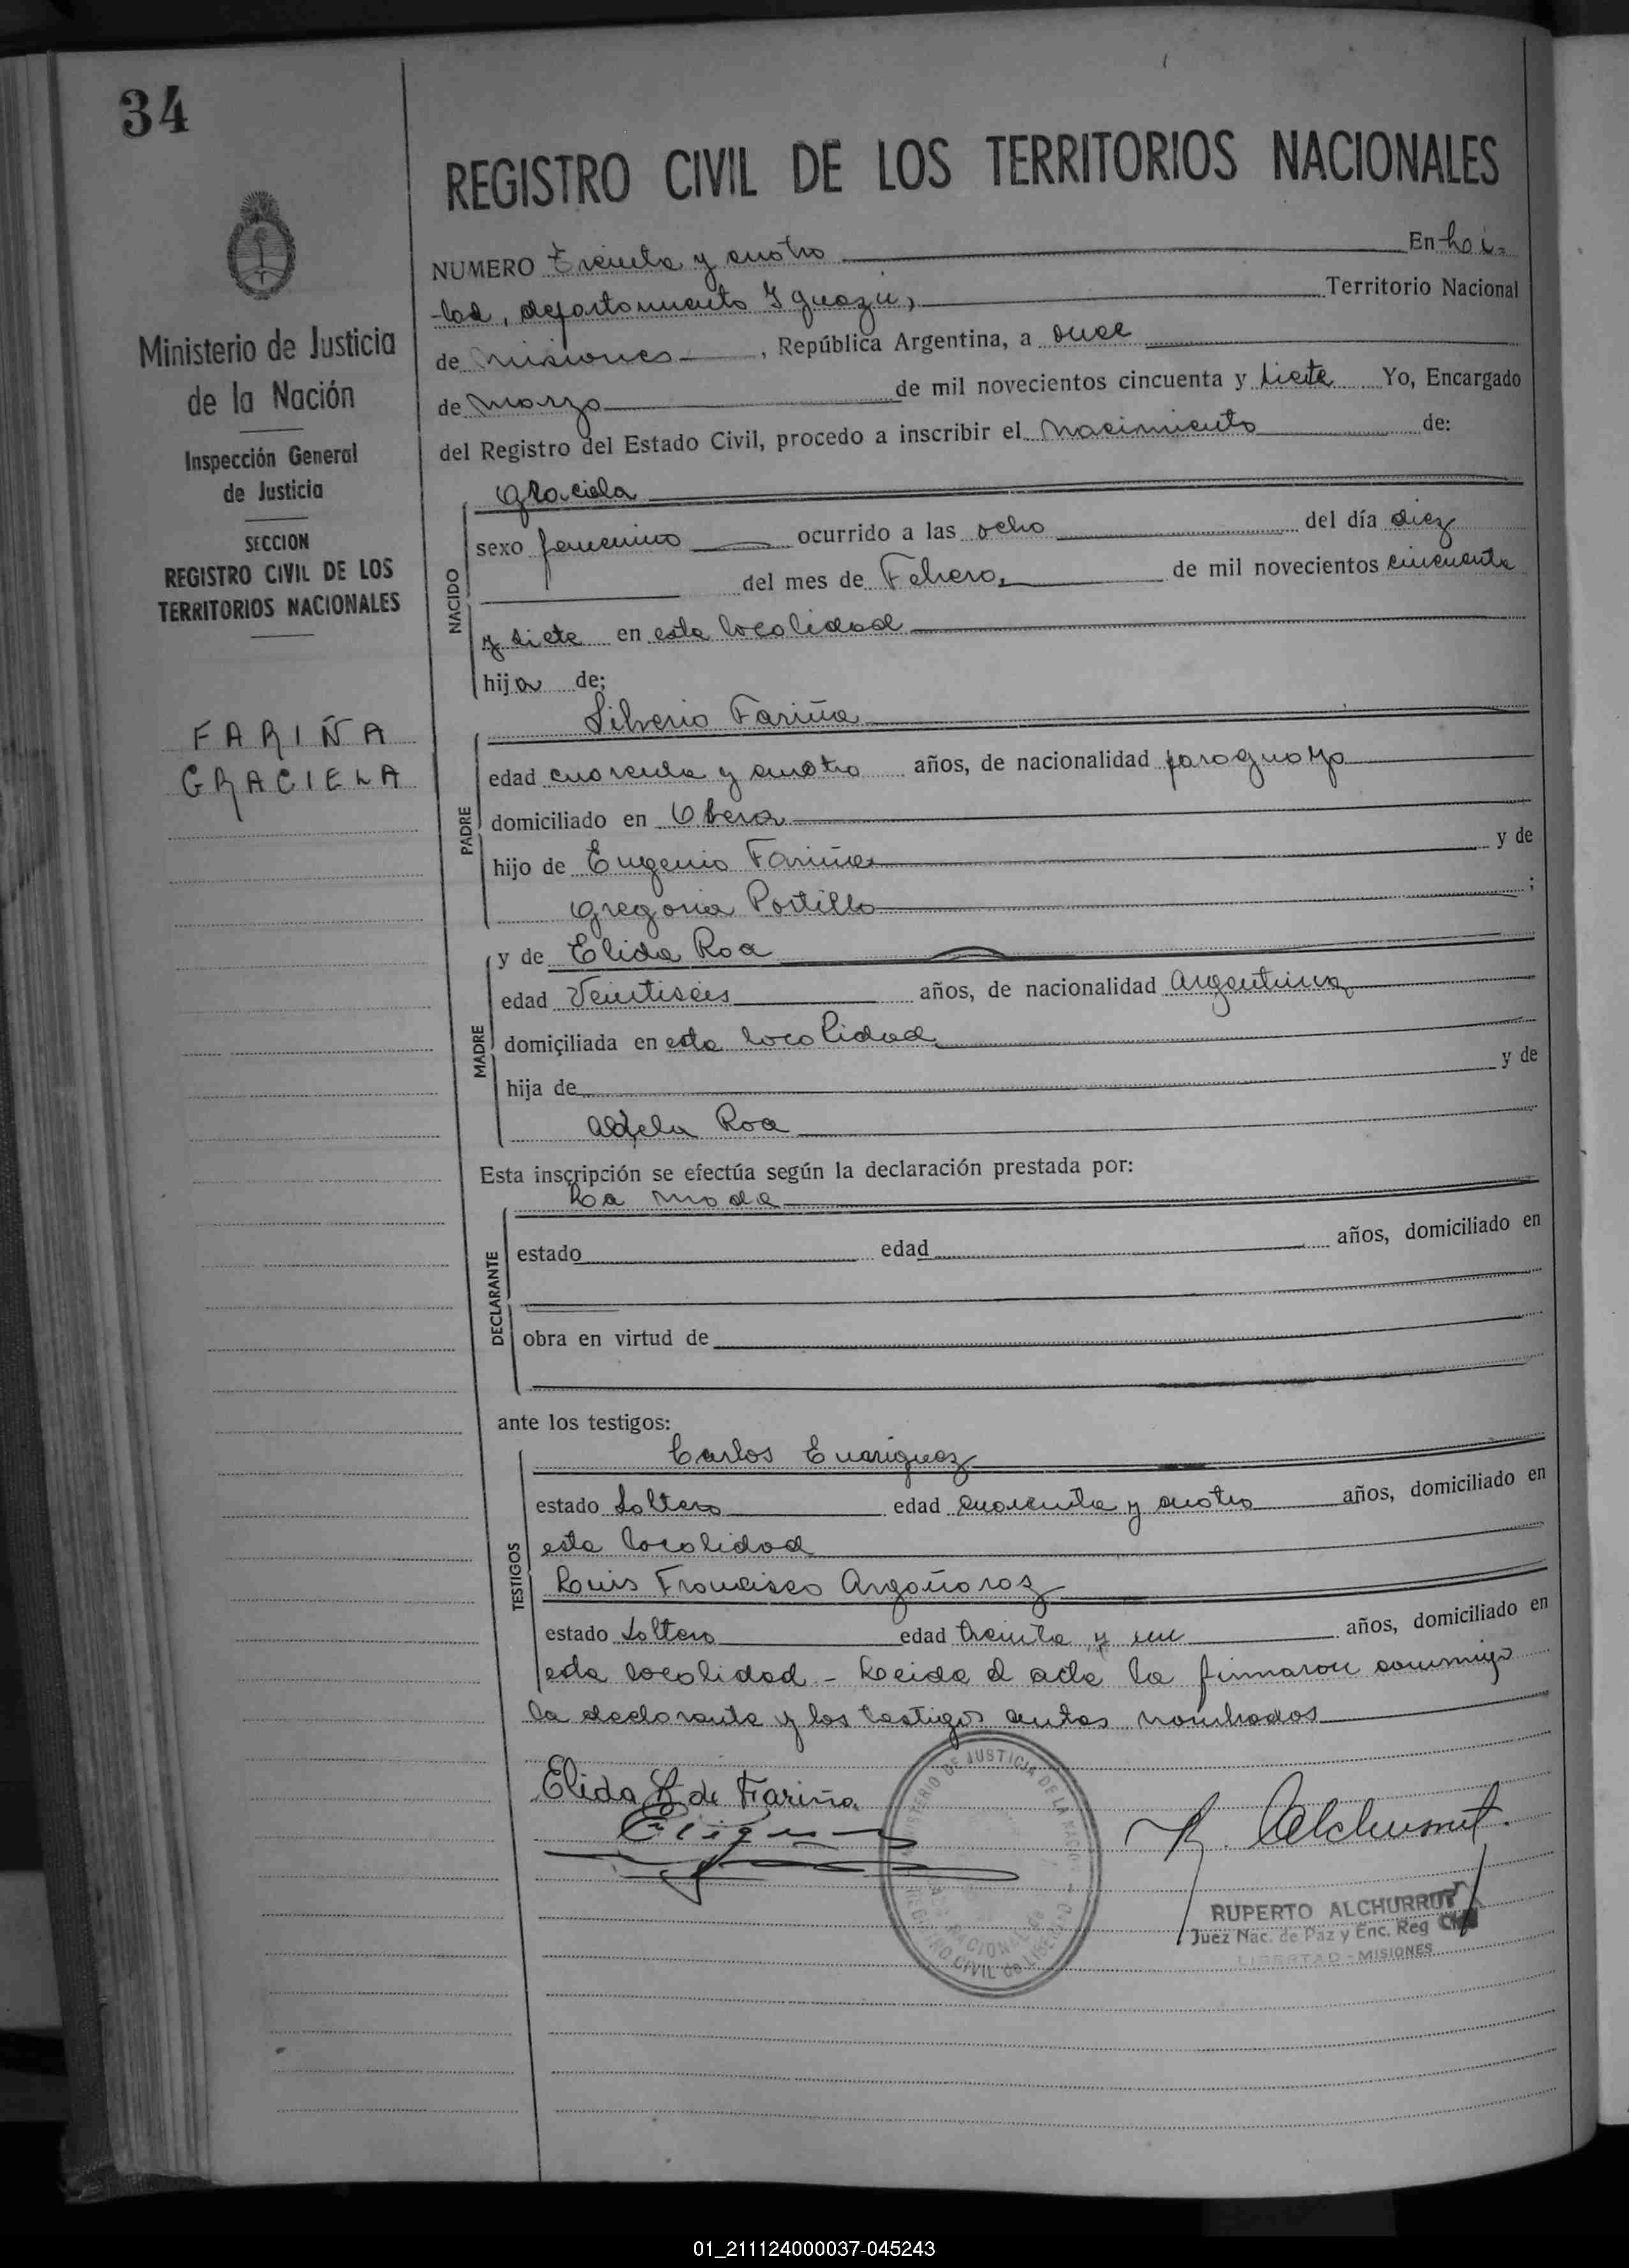 34
REGISTRO CIVIL DE LOS TERRITORIOS NACIONALES
Ministerio de Justicia
de la Nación
Inspección General
de Justicia
SECCION
REGISTRO CIVIL DE LOS
TERRITORIOS NACIONALES
FARIÑA
GRACIELA
NUMERO Treinta y cuatro En
departamento Iguazú, Territorio Nacional
de Misiones, República Argentina, a once
de Marzo de mil novecientos cincuenta y siete Yo, Encargado
del Registro del Estado Civil, procedo a inscribir el Nacimiento de:
NACIDO
Graciela
sexo femenino ocurrido a las ocho del día diez
del mes de Febrero, de mil novecientos cincuenta
y siete en esta localidad
hija de;
PADRE
Silverio Fariña
edad cuarenta y cuatro años, de nacionalidad paraguayo
domiciliado en Obera
hijo de Eugenio Fariña y de
Gregoria Portillo ;
MADRE
y de Elida Roa
edad Veintiseis años, de nacionalidad Argentina
domiciliada en esta localidad
hija de y de
Adela Roa
Esta inscripción se efectúa según la declaración prestada por:
DECLARANTE
La made
estado edad años, domiciliado en
obra en virtud de
ante los testigos:
TESTIGOS
Carlos Enriquez
estado Soltero edad cuarenta y cuatro años, domiciliado en
esta localidad
Luis Francisco Argañaraz
estado Soltero edad treinta y un años, domiciliado en
esta localidad - Leida el acta la firmaron conmigo
la declarante y los testigos antes nombrados
Elida R. de Fariña
MINISTERIO DE JUSTICIA DE LA NACION
REGISTRO CIVIL de LIBERTAD
R. Alchurrut.
RUPERTO ALCHURRUT
Juez Nac. de Paz y Enc. Reg Civil
LIBERTAD - MISIONES
01_211124000037-045243